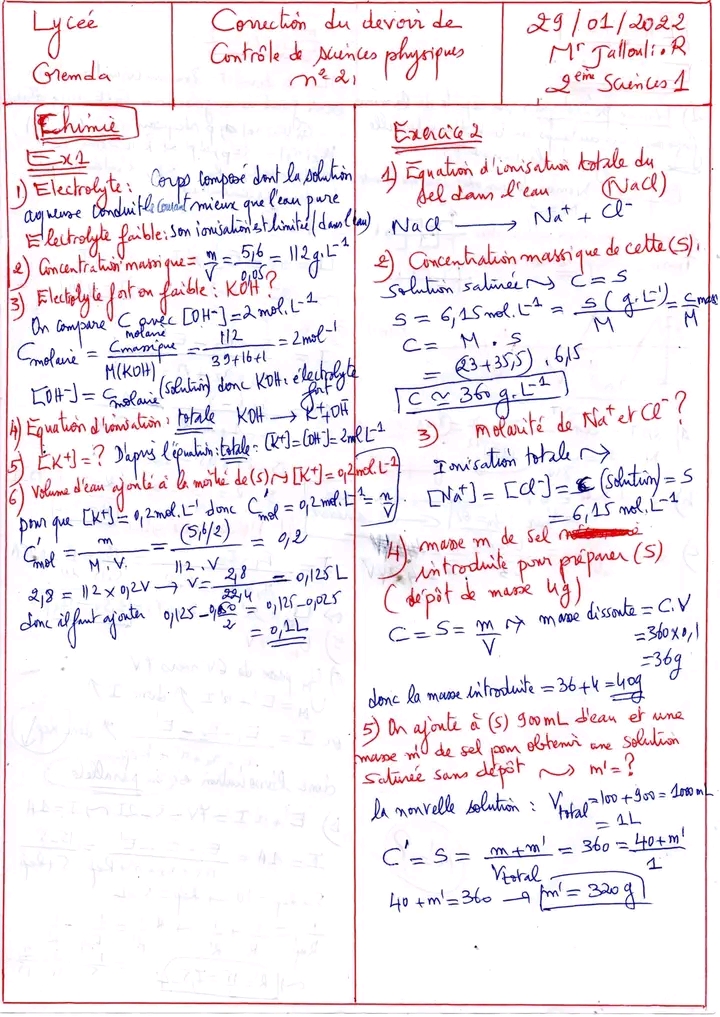 Lycée
Gremda
Correction du devoir de
Contrôle de sciences physiques
n°2.
29/01/2022
Mr Jallouli.R
2ème Sciences 1
Chimie
Ex1
1) Electrolyte : Corps composé dont la solution
aqueuse conduit le courant mieux que l'eau pure
Electrolyte faible : son ionisation est limitée (dans l'eau)
2) Concentration massique = m/V = 5,6/0,05 = 112 g.L-1
3) Electrolyte fort ou faible : KOH ?
On compare C molaire avec [OH-] = 2 mol.L-1
C molaire = C massique / M(KOH) = 112 / 39+16+1 = 2 mol-1
[OH-] = C molaire (solution) donc KOH : électrolyte fort
4) Equation d'ionisation : totale KOH → K+ + OH-
5) [K+] = ? D'après l'équation : totale : [K+] = [OH-] = 2 mol L-1
6) Volume d'eau ajouté à la moitié de (s) ⇝ [K+] = 0,2 mol.L-1
pour que [K+] = 0,2 mol.L-1 donc C'mol = 0,2 mol.L-1 = n/V
C'mol = m / M.V. = (5,6/2) / 112.V = 0,2
2,8 = 112 x 0,2V → V = 2,8 / 22,4 = 0,125 L
donc il faut ajouter 0,125 - 0,050/2 = 0,125 - 0,025
= 0,1L
Exercice 2
1) Equation d'ionisation totale du
sel dans l'eau (NaCl)
NaCl → Na+ + Cl-
2) Concentration massique de cette (S).
Solution saturée ⇝ C = S
S = 6,15 mol.L-1 = s (g.L-1) / M = C mass / M
C = M . S
= (23+35,5) . 6,15
C ≃ 360 g.L-1
3) molarité de Na+ et Cl- ?
Ionisation totale ⇝
[Na+] = [Cl-] = C (solution) = S
= 6,15 mol.L-1
4) masse m de sel
introduite pour préparer (S)
(dépôt de masse 4g)
C = S = m/V ⇝ masse dissoute = C.V
= 360 x 0,1
= 36g
donc la masse introduite = 36 + 4 = 40g
5) On ajoute à (S) 900mL d'eau et une
masse m' de sel pour obtenir une solution
saturée sans dépôt ⇝ m' = ?
la nouvelle solution : V total = 100 + 900 = 1000 mL
= 1L
C' = S = m+m' / V total = 360 = 40+m' / 1
40 + m' = 360 → m' = 320 g